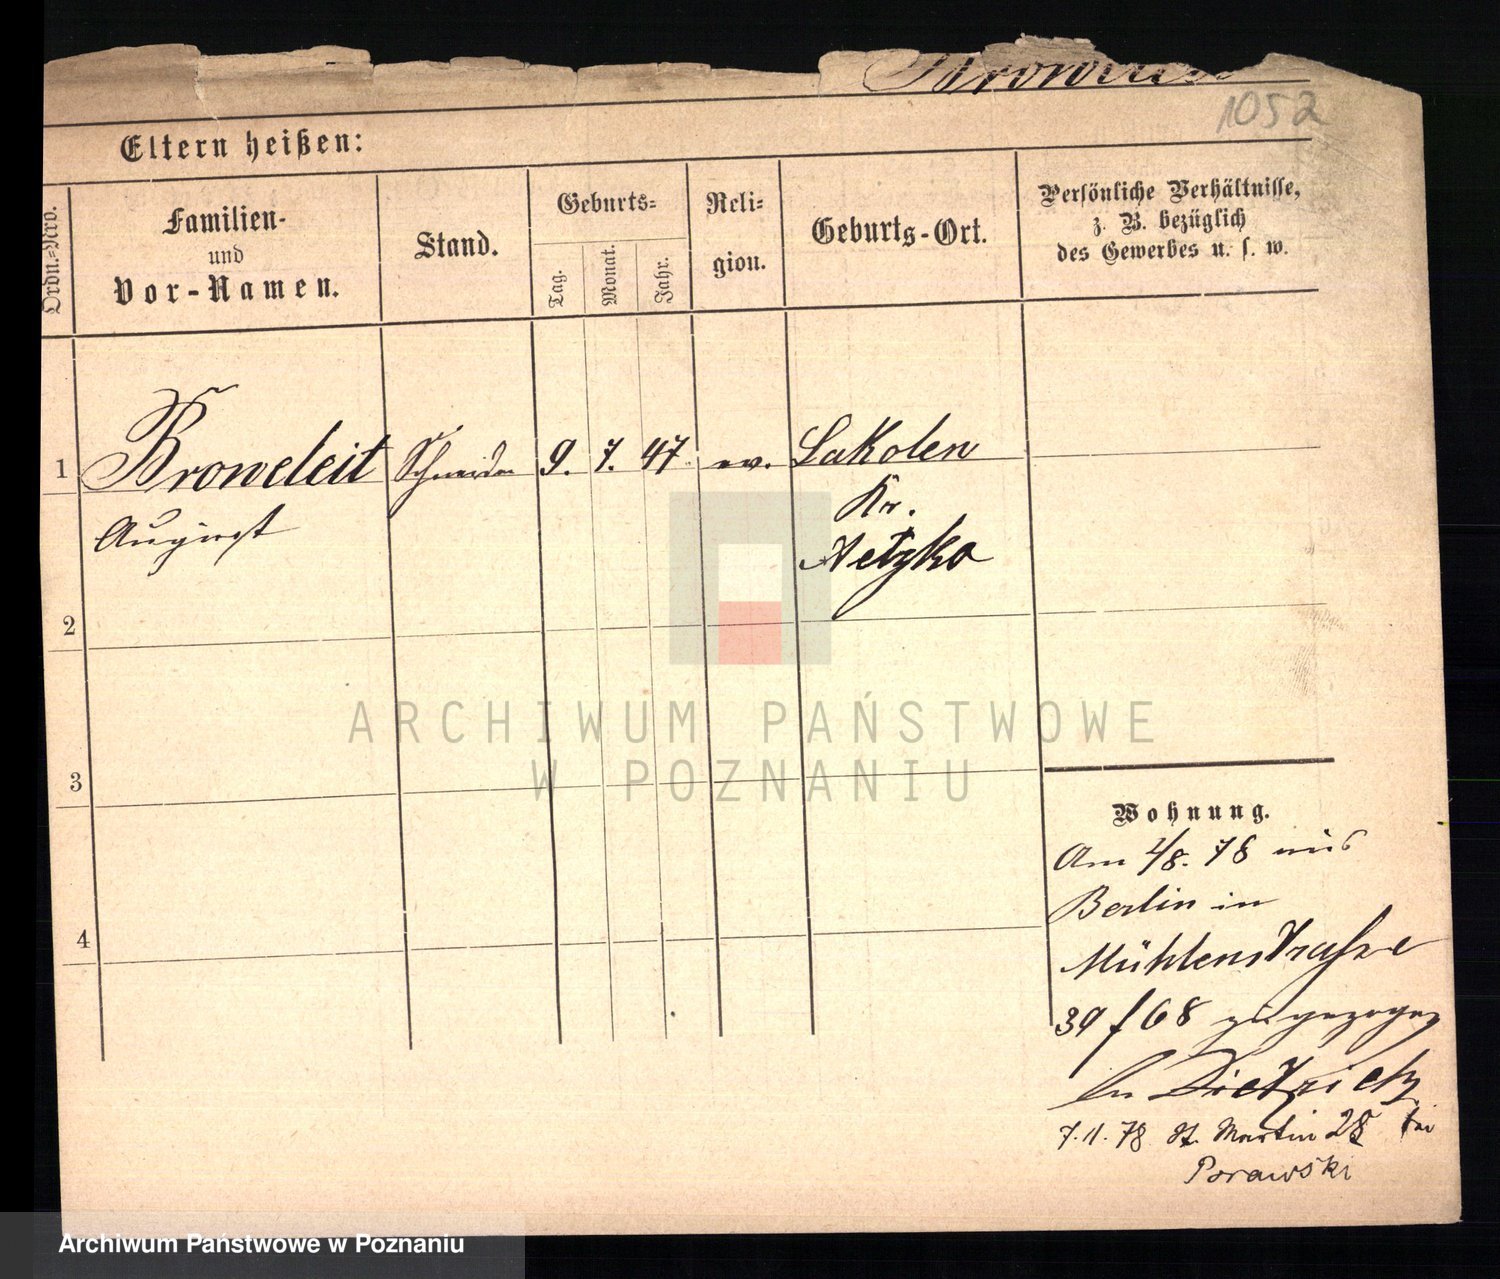 Broweleit
1052
Eltern heißen:
Ordn.=Nro.
Familien-
und
Vor-Namen.
Stand.
Geburts=
Tag.
Monat.
Jahr.
Reli=
gion.
Geburts-Ort.
Persönliche Verhältnisse,
z. B. bezüglich
des Gewerbes u. s. w.
1 Broweleit Schneider 9. 7. 47. ev. Lakolen
August
Kr.
2
3
4
ARCHIWUM PAŃSTWOWE
W POZNANIU
Wohnung.
Am /8. 78 aus
Berlin in
Mühlenstraße
39 f 68 zugezogen
bei Dietrich
7.11.78 St. Martin 28 bei
Porawski
Archiwum Państwowe w Poznaniu